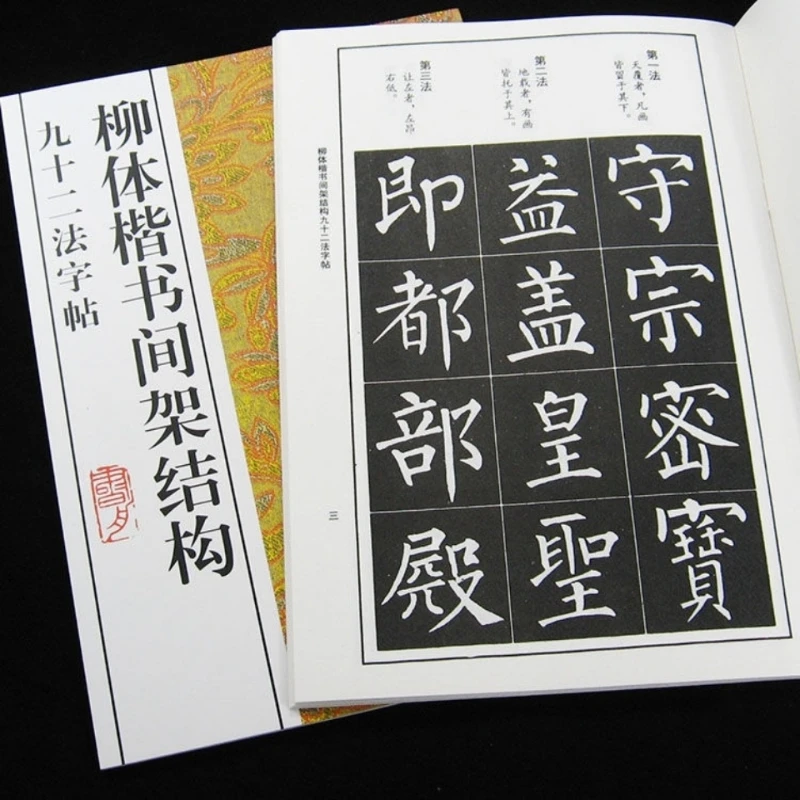 柳体楷书间架结构
九十二法字帖
第一法
天覆者，凡画
皆留于其下。
第二法
地载者，有画
皆托于其上。
第三法
让左者，左昂
右低。
守宗密寶
益盖皇聖
即都部殿
柳体楷书间架结构九十二法字帖
三